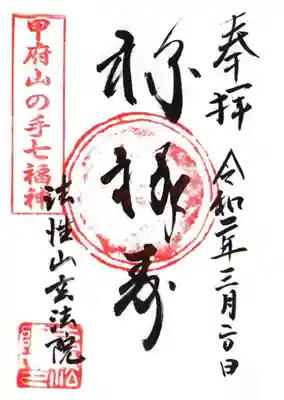 奉拝 令和二年三月二〇日
福禄寿
法性山玄法院
甲府山の手七福神